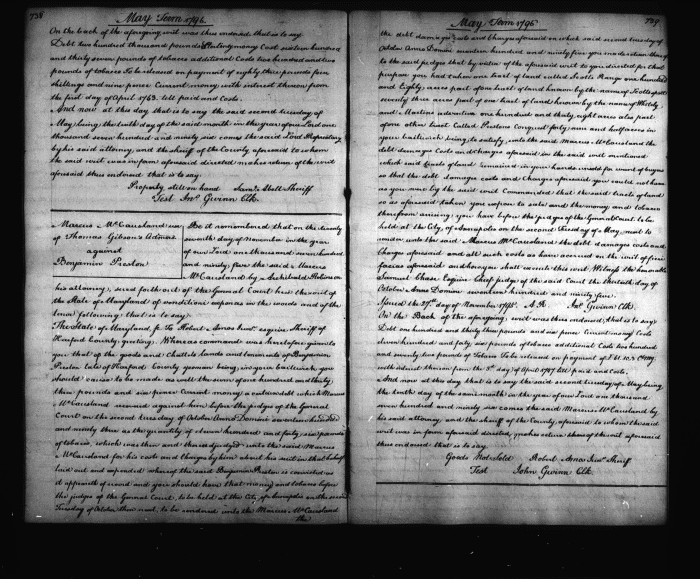 738
May Term 1796.
On the back of the aforegoing writ was thus endorsed that is to say
Debt two hundred thousand pounds Currency Cost sixteen hundred
and thirty seven pounds of tobacco additional Costs two hundred and two
pounds of tobacco To be released on payment of eighty three pounds four
shillings and nine pence Current money with interest thereon from
the first day of April 1763 till paid and Costs.
And now at this day that is to say the said second tuesday of
May being the tenth day of the said month in the year of our Lord one
thousand seven hundred and ninety six comes the said Lord Proprietary
by his said attorney, and the sheriff of the County aforesaid to whom
the said writ was in form aforesaid directed makes return of the writ
aforesaid thus endorsed that is to say.
Property still on hand Sheriff
Test Jno. Gwinn Clk.
Marcus McCausland
of Thomas Gibson's Admx
against
Benjamin Preston
Be it remembered that on the twenty
seventh day of November in the year
of our Lord one thousand seven hundred
and ninety five the said Marcus
McCausland by Archibald Robinson
his attorney, sued forth out of the General Court here the writ of
the State of Maryland of venditioni exponas in the words and of the
tenor following that is to say.
The State of Maryland, ss To Robert Amos Junr. esquire Sheriff of
Harford County, greeting. Whereas command was heretofore given to
you that of the goods and Chattels lands and tenements of Benjamin
Preston late of Harford County yeoman being in your bailiwick you
should cause to be made as well the sum of one hundred and thirty
three pounds and six pence Current money a certain debt which Marcus
McCausland recovered against him before the judges of the General
Court on the second tuesday of October Anno Domini seventeen hundred
and ninety three as the quantity of eleven hundred and forty six pounds
of tobacco, which was then and there adjudged unto the said Marcus
McCausland for his costs and charges by him about his suit in that behalf
laid out and expended whereof the said Benjamin Preston is convicted as
it appears of record and you should have that money and tobacco before
the judges of the General Court, to be held at the City of Annapolis on the second
Tuesday of October then next, to be rendered unto the Marcus McCausland
the
May Term 1796
739
the debt damages costs and charges aforesaid on which said second tuesday of
October Anno Domini seventeen hundred and ninety five you made return thereof
to the said judges that by virtue of the aforesaid writ to you directed for that
purpose you had taken one tract of land called Scotts Range one hundred
and Eighty acres part of one tract of land known by the name of
seventy three acres part of one tract of land known by the name of
and Martins adventure one hundred and thirty eight acres also part
of one other tract Called Prestons Conquest forty nine and half acres in
your bailiwick being, to satisfy, unto the said Marcus McCausland the
debt damages Costs and charges aforesaid in the said writ mentioned
which said tracts of land remained in your hands unsold for want of buyers
so that the debt damages costs and Charges aforesaid you could not have
as you was by the said writ Commanded that the said tracts of land
so as aforesaid taken you expose to sale and the money and tobacco
therefrom arising, you have before the judges of the General Court to be
held at the City of Annapolis on the second Tuesday of May, next to
render unto the said Marcus McCausland the debt damages costs and
Charges aforesaid and all such costs as have accrued on the writ of fieri
facias aforesaid and have you there with this writ Witness the honorable
Samuel Chase Esquire Chief judge of the said Court the thirteenth day of
October Anno Domini seventeen hundred and ninety five.
Issued the 27th. day of November 1795. A.R. Jno. Gwinn Clk.
On the Back of the aforegoing, writ was thus endorsed, that is to say
Debt one hundred and thirty three pounds and six pence Current money Costs
eleven hundred and forty six pounds of tobacco additional Costs two hundred
and seventy two pounds of Tobacco To be released on payment of
with interest thereon from the day of April 1787 till paid and Costs.
And now at this day that is to say the said second tuesday of May being
the tenth day of the same month in the year of our Lord one thousand
seven hundred and ninety six comes the said Marcus McCausland by
his said attorney, and the sheriff of the County aforesaid to whom the said
writ was in form aforesaid directed, makes return thereof the writ aforesaid
thus endorsed that is to say.
Goods Not Sold Robert Amos Junr. Sheriff
Test John Gwinn Clk